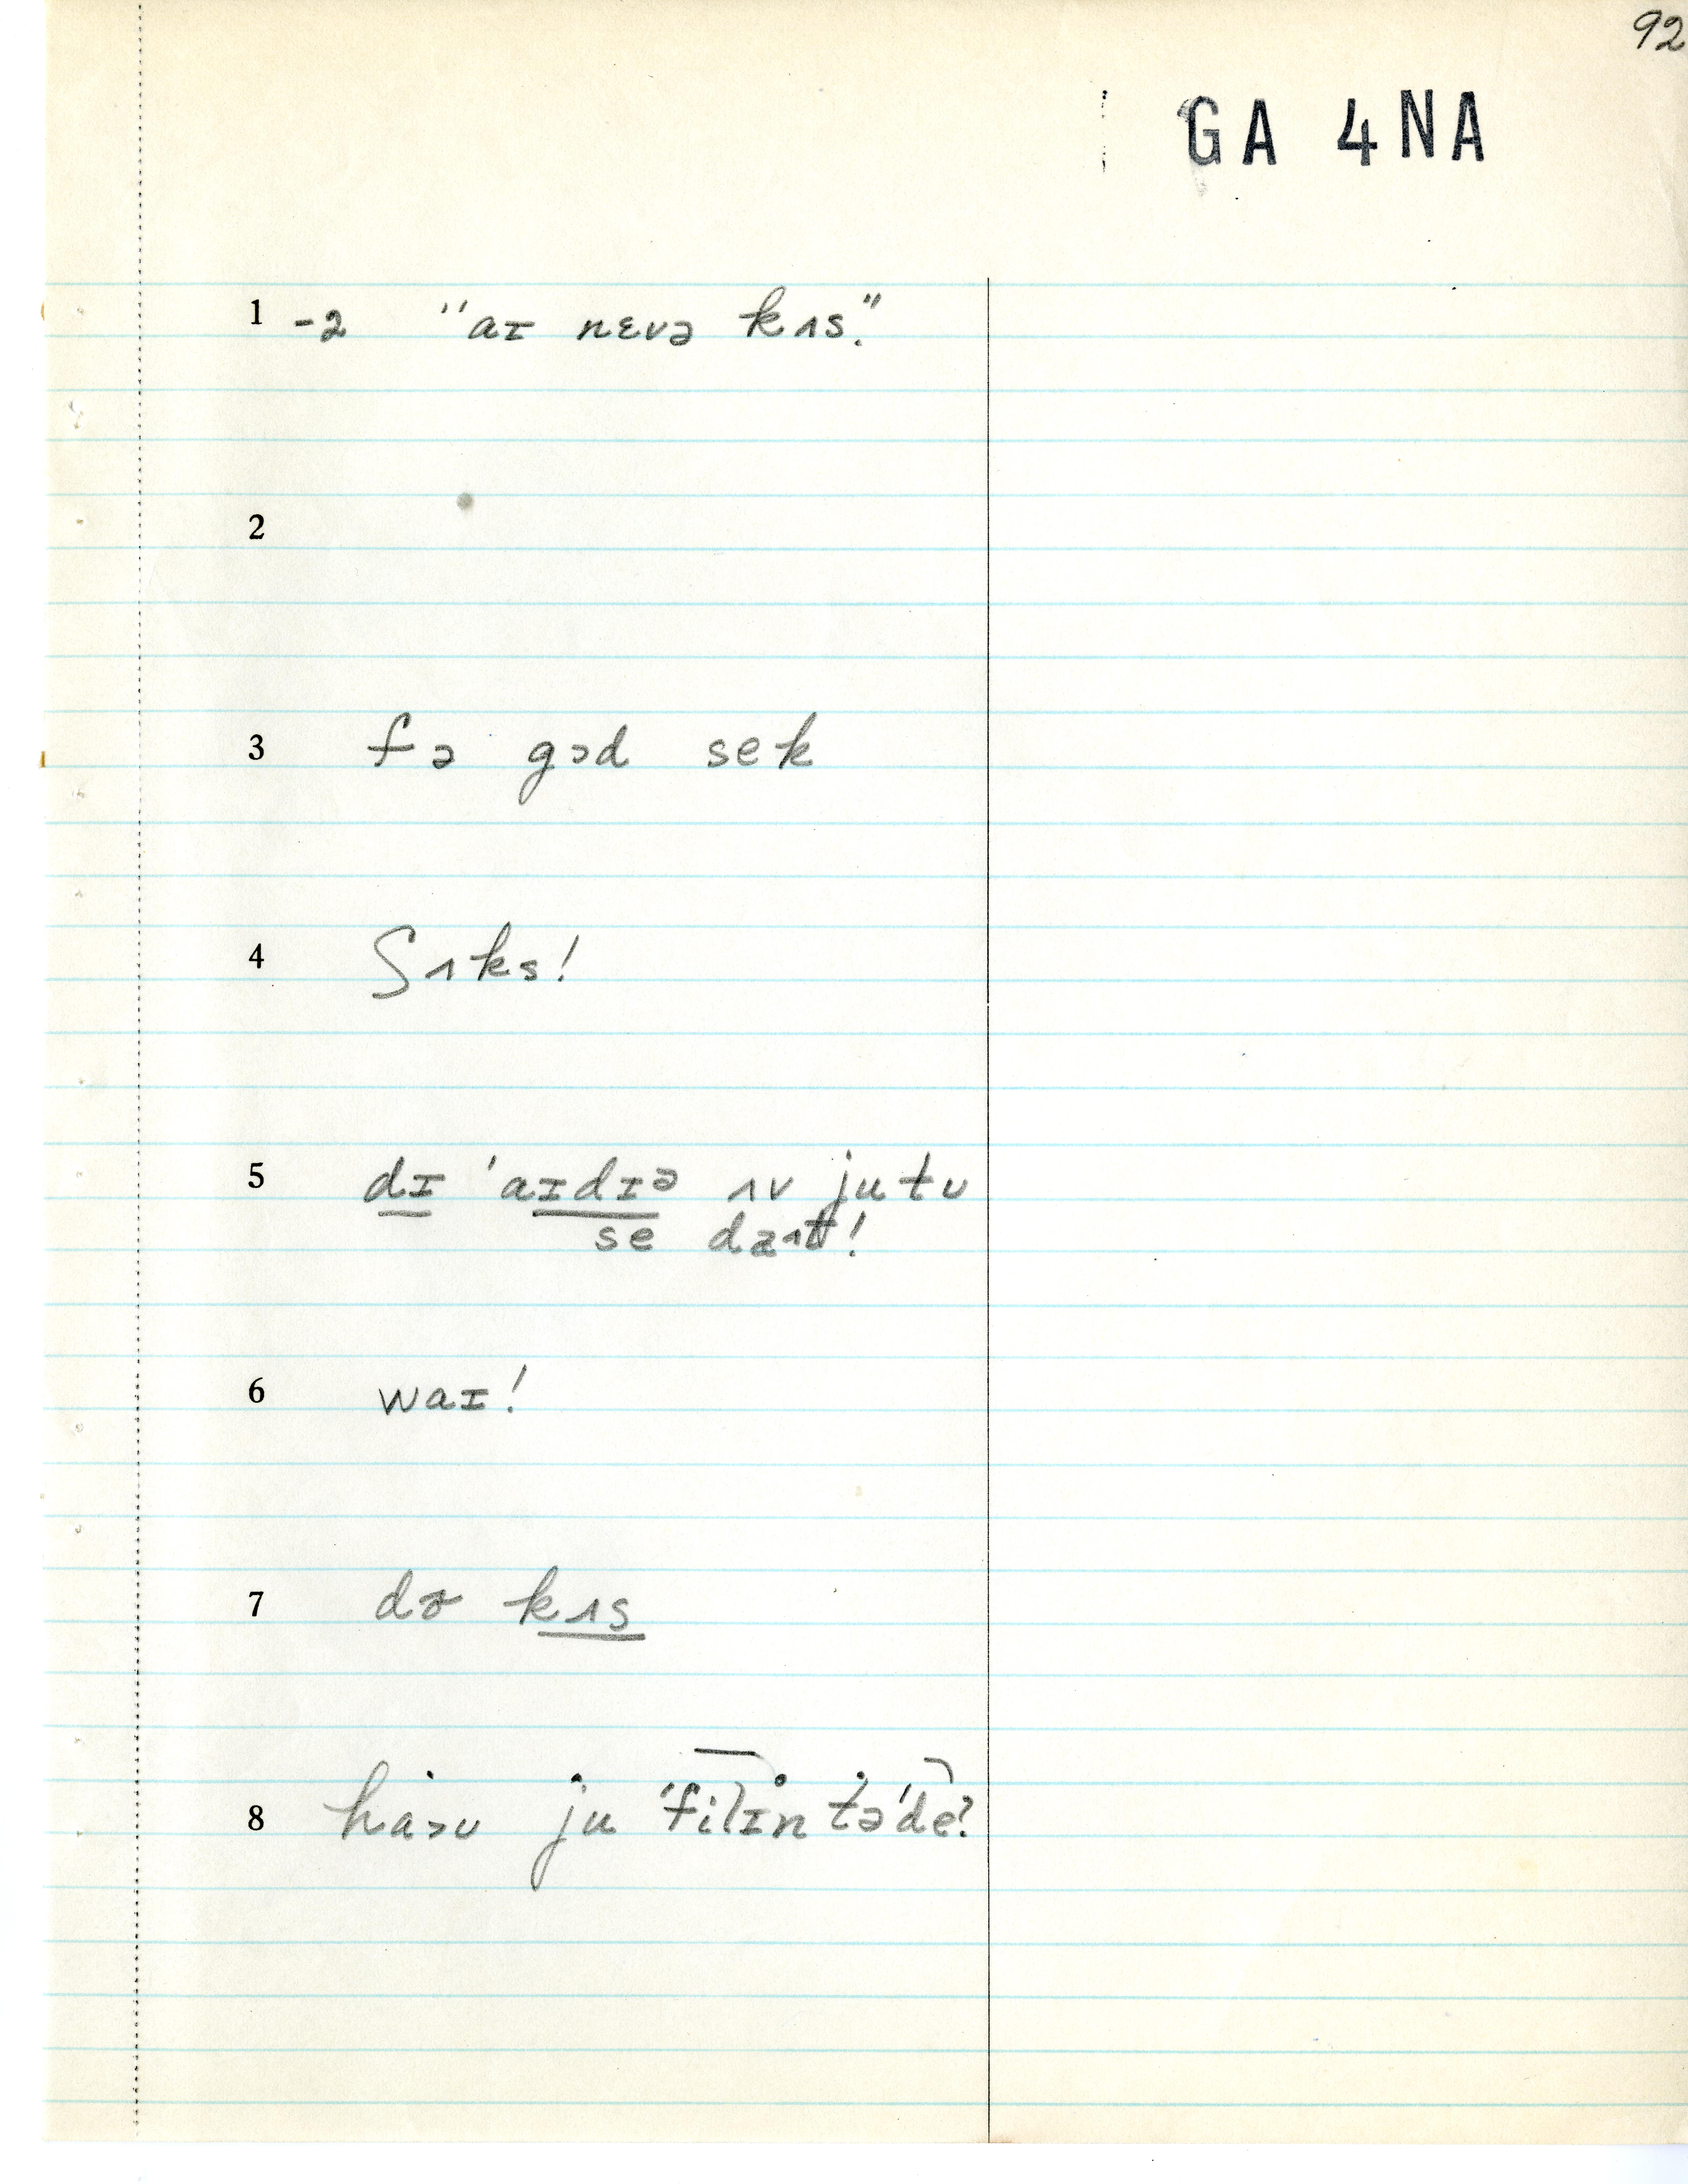 92
GA 4NA
1 -2 "aɪ nɛvə kʌs."
2
3 fə gɔd sek
4 ʃʌks!
5 dɪ 'aɪdɪə ʌv ju tu
se
6 waɪ!
7 kʌs
8 ju 'filɪn tə'de?